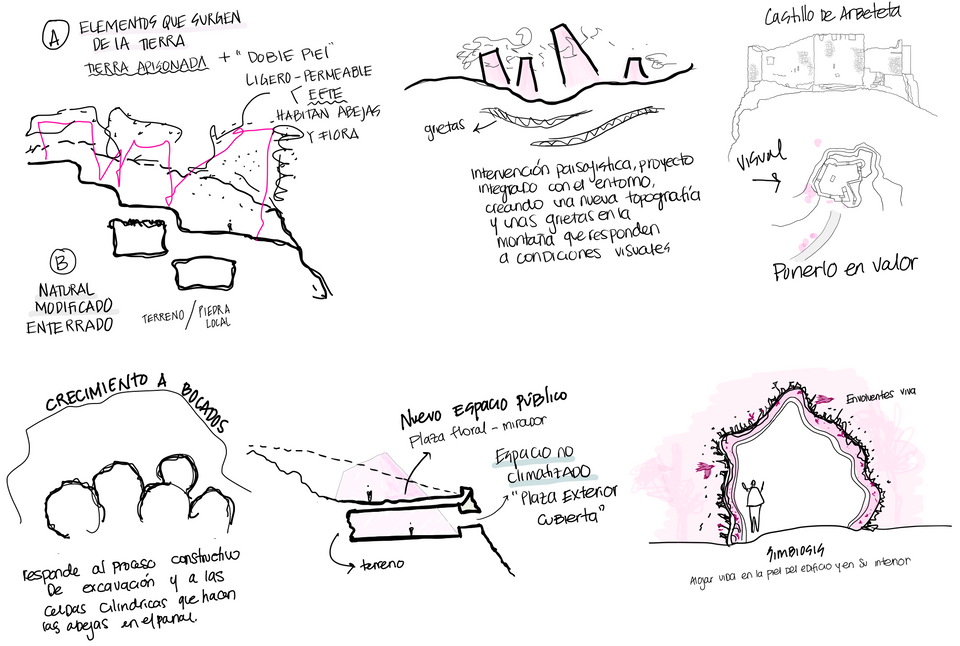 A ELEMENTOS QUE SURGEN
DE LA TIERRA
TIERRA APISONADA + "DOBLE PIEL"
LIGERO-PERMEABLE
EFTE
HABITAN ABEJAS
Y FLORA
B
NATURAL
MODIFICADO
ENTERRADO
TERRENO / PIEDRA
LOCAL
grietas
Intervención paisajística, proyecto
integrado con el entorno,
creando una nueva topografía
y unas grietas en la
montaña que responden
a condiciones visuales
Castillo de Arbeteta
VISUAL
Ponerlo en valor
CRECIMIENTO A BOCADOS
responde al proceso constructivo
De excavación y a las
celdas cilíndricas que hacen
las abejas en el panal.
Nuevo Espacio Público
Plaza floral - mirador
Espacio no
climatizado
"Plaza Exterior
cubierta"
terreno
Envolventes viva
SIMBIOSIS
Alojar vida en la piel del edificio y en su interior